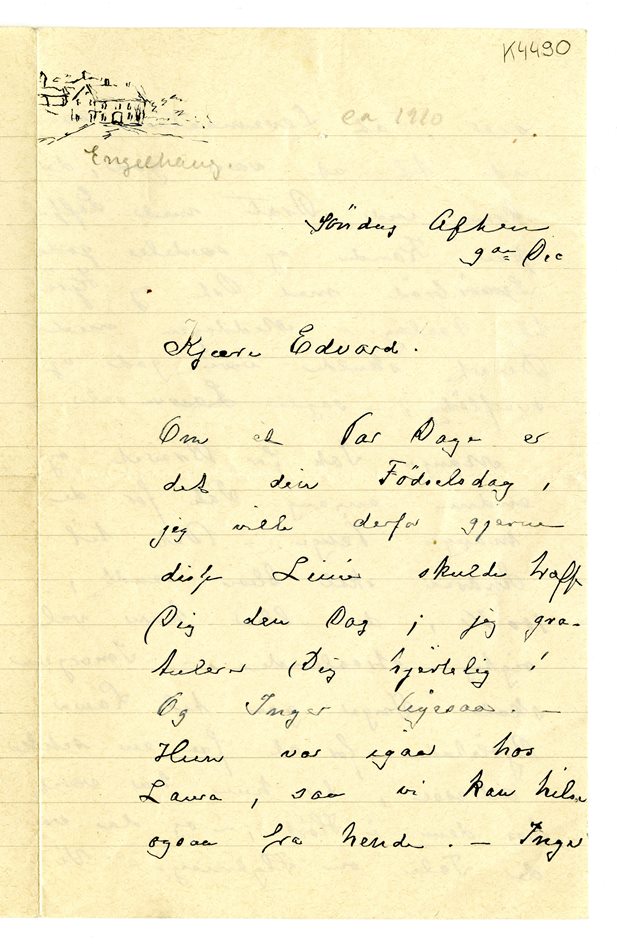 K4490
ca. 1910
Engelhaug.
Söndag Aften
9de Dec
Kjære Edvard.
Om et Par Dage er
det din Födselsdag,
jeg vilde derfor gjerne
disse Linier skulde træffe
Dig den Dag; jeg gra-
tulerer Dig hjertelig!
Og Inger ligesaa. –
Hun var igaar hos
Laura, saa vi kan hilse
ogsaa fra hende. – Inger